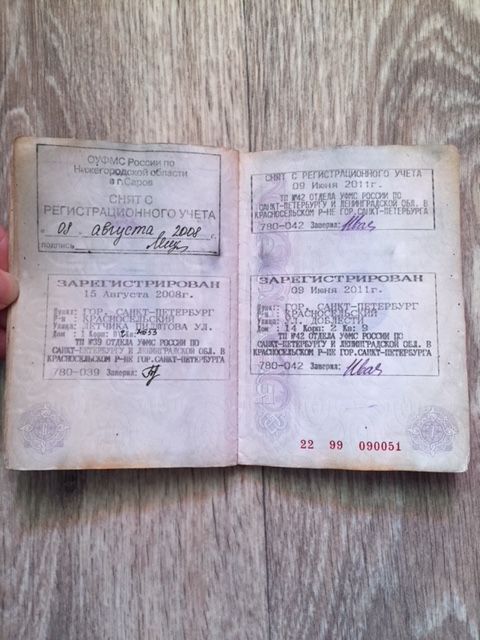 ОУФМС России по
Нижегородской области
в г.Саров
СНЯТ С
РЕГИСТРАЦИОННОГО УЧЕТА
" 08 " августа 2008 г.
подпись
ЗАРЕГИСТРИРОВАН
15 Августа 2008г.
Пункт: ГОР. САНКТ-ПЕТЕРБУРГ
Р-н : КРАСНОСЕЛЬСКИЙ
Улица: ЛЕТЧИКА ПИЛЮТОВА УЛ.
Дом :
ТП №39 ОТДЕЛА УФМС РОССИИ ПО
САНКТ-ПЕТЕРБУРГУ И ЛЕНИНГРАДСКОЙ ОБЛ. В
КРАСНОСЕЛЬСКОМ Р-НЕ ГОР.САНКТ-ПЕТЕРБУРГА
780-039 Заверил:
СНЯТ С РЕГИСТРАЦИОННОГО УЧЕТА
09 Июня 2011г.
ТП №42 ОТДЕЛА УФМС РОССИИ ПО
САНКТ-ПЕТЕРБУРГУ И ЛЕНИНГРАДСКОЙ ОБЛ. В
КРАСНОСЕЛЬСКОМ Р-НЕ ГОР.САНКТ-ПЕТЕРБУРГА
780-042 Заверил:
ЗАРЕГИСТРИРОВАН
09 Июня 2011г.
Пункт: ГОР. САНКТ-ПЕТЕРБУРГ
Р-н : КРАСНОСЕЛЬСКИЙ
Улица: УЛ. ДОБЛЕСТИ
Дом : 14 Корп: 2 Кв: 9
ТП №42 ОТДЕЛА УФМС РОССИИ ПО
САНКТ-ПЕТЕРБУРГУ И ЛЕНИНГРАДСКОЙ ОБЛ. В
КРАСНОСЕЛЬСКОМ Р-НЕ ГОР.САНКТ-ПЕТЕРБУРГА
780-042 Заверил:
22 99 090051